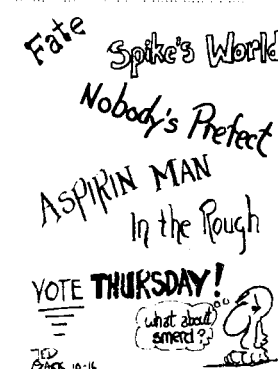 Fate
Spike's World
Nobody's Prefect
ASPIRIN MAN
In the Rough
VOTE THURSDAY!
what about
smerd?
TED